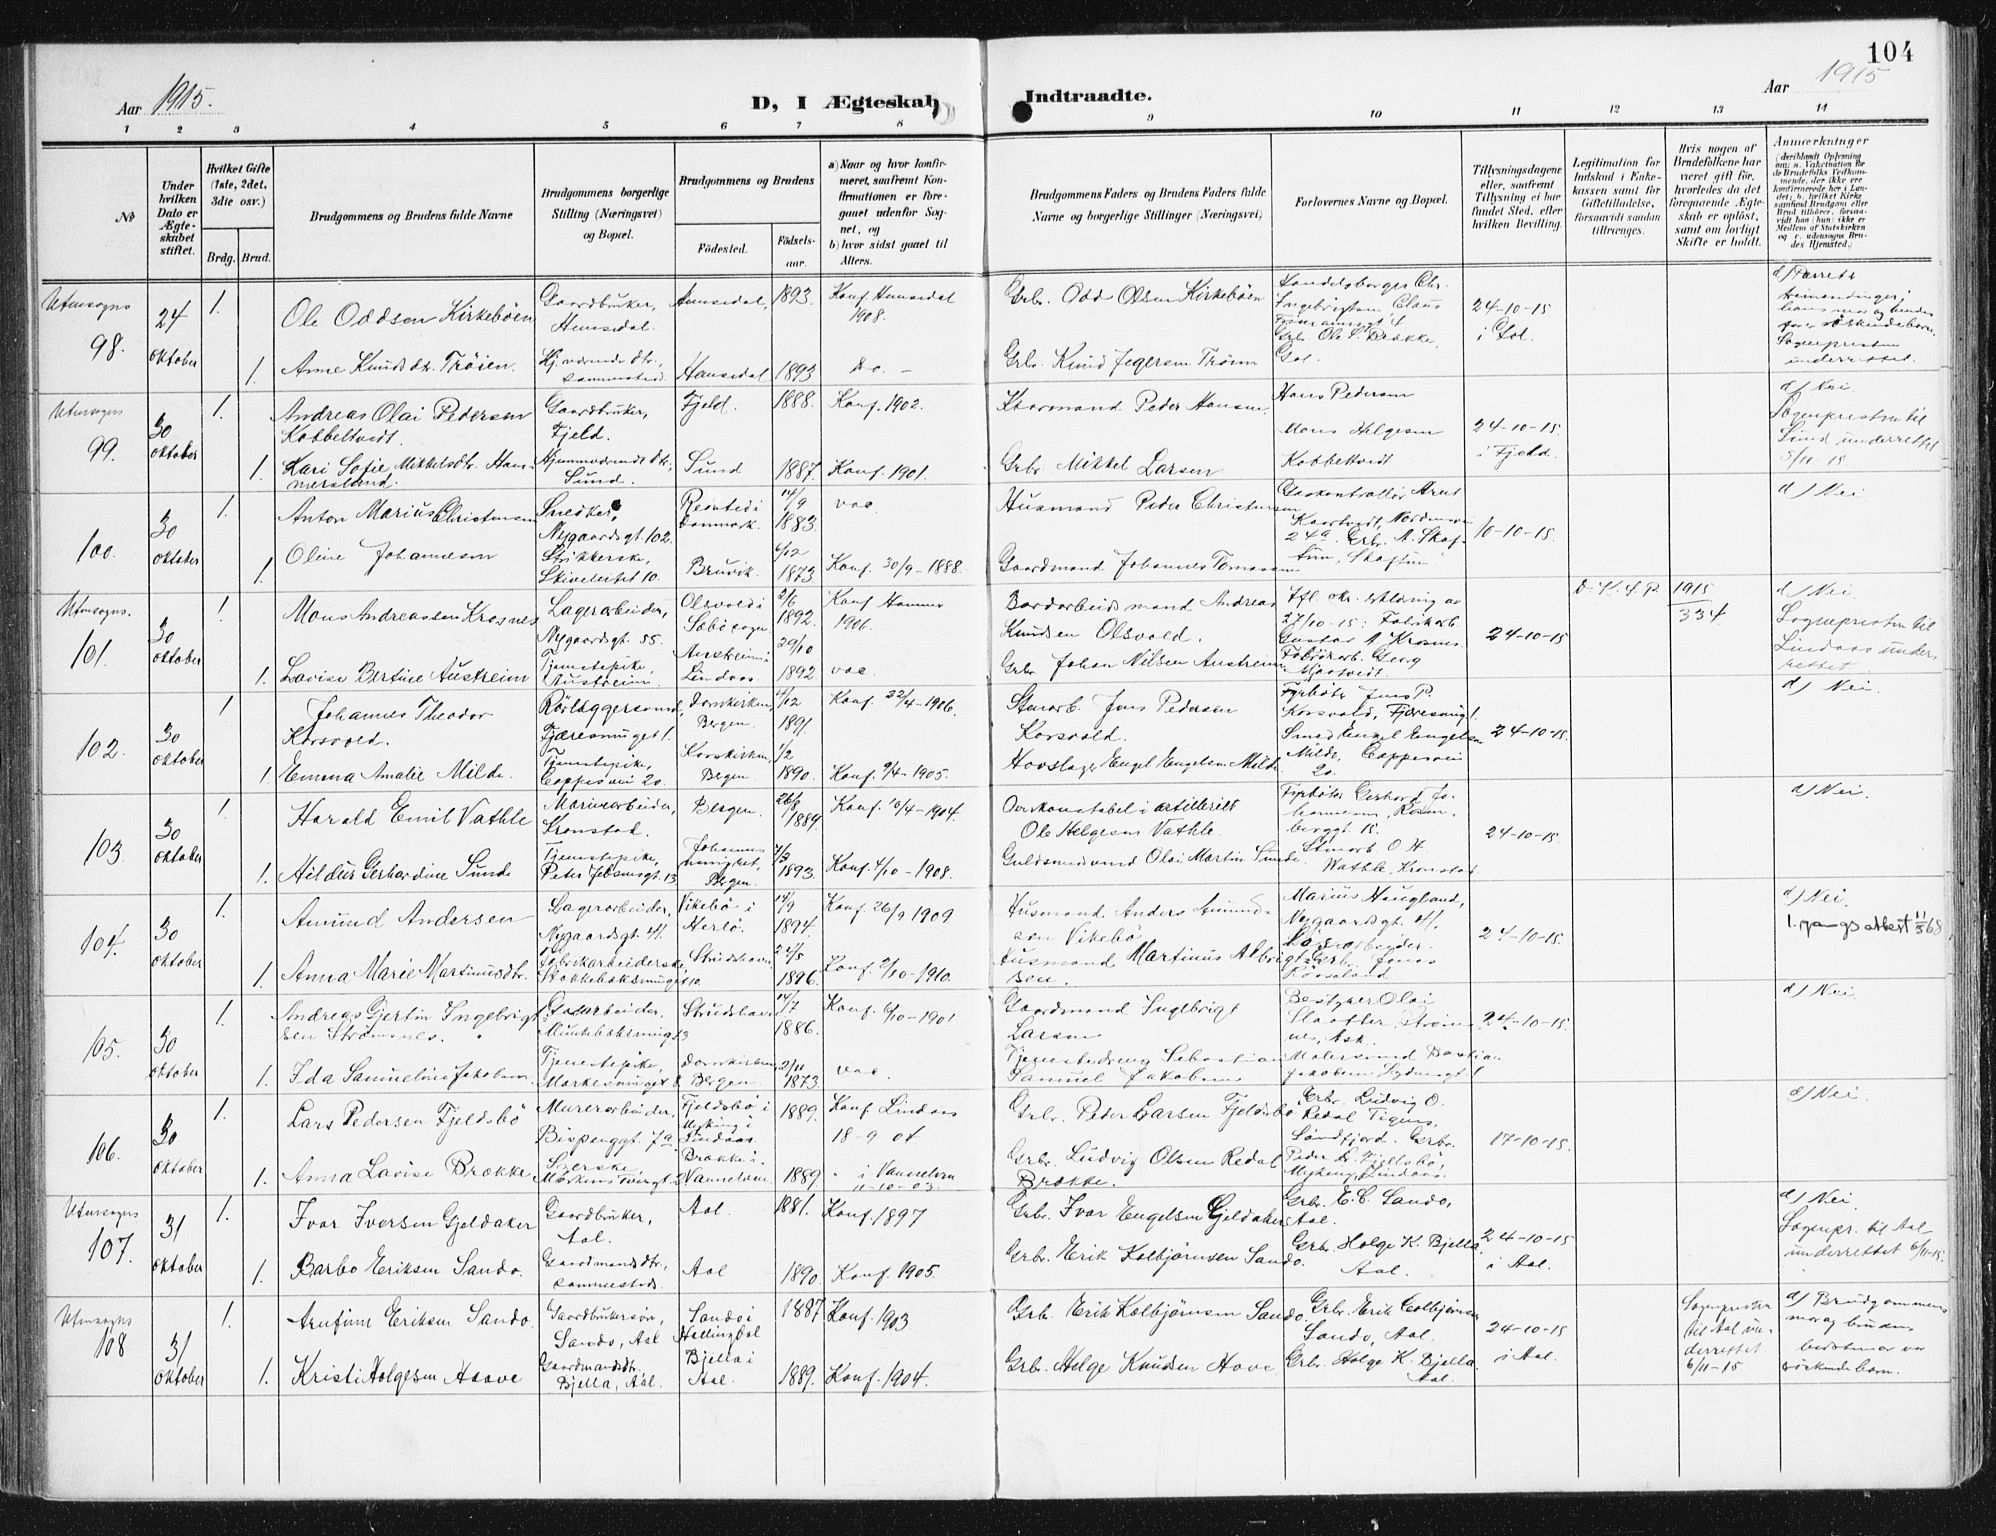 104
Aar 1915.
D, I Ægteskab
Indtraadte.
Aar 1915
1 2 3 4 5 6 7 8 9 10 11 12 13 14
No
Under hvilken Dato er Ægteskabet stiftet.
Hvilket Gifte (1ste, 2det, 3die osv.)
Brdg. Brud.
Brudgommens og Brudens fulde Navne
Brudgommens borgerlige Stilling (Næringsvei) og Bopæl.
Brudgommens og Brudens
Födested.
Födselsaar.
a) Naar og hvor konfirmeret, saafremt Konfirmationen er foregaaet udenfor Sognet, og
b) hvor sidst gaaet til Alters.
Brudgommens Faders og Brudens Faders fulde Navne og borgerlige Stillinger (Næringsvei)
Forlovernes Navne og Bopæl.
Tillysningsdagene eller, saafremt Tillysning ei har fundet Sted, efter hvilken Bevilling.
Legitimation for Indskud i Enkekassen samt for Giftetilladelse, forsaavidt saadan tiltrænges.
Hvis nogen af Brudefolkene har været gift før, hvorledes da det foregaaende Ægteskab er oplöst, samt om lovligt Skifte er holdt.
Anmærkninger
Utensogns
98.
24
oktober
1.
Ole Oddsen Kirkeböen
Gaardbruker,
Hemsedal.
Hemsedal,
1893.
Konf. Hemsedal
1908.
Grb. Odd Olsen Kirkebøen
24-10-15
i Gol.
1.
Anne Knudsdtr. Tröien.
Hjemværende dtr.,
sammesteds.
Hemsedal
1893
Do. -
Grb. Ole S. Brække,
Gol.
Sognepresten
underrettet.
Utensogns
99.
30
oktober
1.
Andreas Olai Pedersen
Kobbeltvedt.
Gaardbruker,
Fjeld.
Fjeld.
1888.
Konf. 1902.
Peder Hansen.
Hans Pedersen
Mons Helgesen
Kobbeltvedt
24-10-15.
i Fjeld.
d) Nei.
Sognepresten til
Sund underrettet
5/11 15.
1.
Kari Sofie Mikkelsdtr. Hammersland.
Hjemmeværende dtr.,
Sund.
Sund
1887.
Konf. 1901.
Grb. Mikkel Larsen
100.
30
oktober
1.
Anton Marius Christensen
Snedker,
Nygaardsgt 102.
Danmark.
14/9
1883.
vac.
Husmand Peder Christensen
24a. Grb. A. Skaftun, Skaftun
10-10-15.
d) Nei
1.
Oline Johannesen
Strikkerske,
Skiveleitet 10.
Bruvik.
6/12
1873
Konf. 30/9-1888.
Gaardmand Johannes Tomassen
Utensogns.
101.
30
oktober
1.
Mons Andreassen Krosnes
Lagerarbeider,
Nygaardsgt. 55.
Olsvold i
Sæbö sogn
2/6
1892.
Konf. Hammer
1906.
Andreas
Knudsen Olsvold.
27/10-15: Fabrikarb.
Gustav A. Krosnes.
24-10-15
D. K. f. P.
1915
334
d) Nei.
Sognepresten til
Lindaas underrettet.
1.
Lovise Bertine Austreim
Tjenestepike,
Austreim.
Austreim i
Lindaas
29/10
1892
vac.
Grb. Johan Nilsen Austreim
Fabrikarb. Georg
102.
30
oktober
1
Johannes Theodor
Korsvold.
Rörlæggersvend,
Fjæresmuget 1.
Domkirken,
Bergen.
4/12
1891.
Konf. 22/4-1906.
Stenarb. Jens Pedersen
Korsvold.
Fyrböter Jens P.
Korsvold, Fjæresmug 1.
Smed Engel Engelsen
Milde, Cappesvei
20.
24-10-15.
d) Nei.
1.
Emma Amalie Milde.
Tjenestepike,
Cappesvei 20.
Korskirken,
Bergen.
1/2
1890.
Konf. 9/4-1905.
Hovslager Engel Engelsen Milde
103.
30
oktober
1.
Harald Emil Vathle
Murerarbeider,
Kronstad.
Bergen.
26/8
1889.
Konf. 10/4-1904.
Overkonstabel i artilleriet
Ole Helgesen Vathle.
Fyrböter Gerhard Johannesen, Rosenberggt. 15.
Stenarb. O. H.
Wathle, Kronstad
24-10-15.
d) Nei.
1.
Hildur Gerhardine Sunde
Tjenestepike,
Peter Jebsensgt. 13
Johannesmenighet,
Bergen.
1893.
Konf. 4/10-1908.
Guldsmedsvend Olai Martin Sunde.
104.
30
oktober
1.
Amund Andersen
Lagerarbeider,
Nygaardsgt. 41.
Vikebö i
Herlö.
14/9
1894.
Konf. 26/9 1909
Husmand Anders Amundsen Vikebö
Marius Haugland,
Nygaardsgt. 41.
24-10-15.
d) Nei.
1. gangs attest 11/3 68
1.
Anna Marie Martinusdtr.
Fabrikarbeiderske,
Stokkebæksmuget 10.
Strudshavn
24/5
1896.
Konf. 2/10-1910.
Husmand Martinus Albrigtsen.
Grb. Jonas
Rörseland.
105.
30
oktober
1.
Andreas Gjertin Ingebrigtsen Strømsnes.
Munkebæksmuget 3
Strudshavn
14/7
1886.
Konf. 6/10-1901
Gaardmand Ingebrigt
Larsen
Bestyrer Olai
Strömsnes, Ask.
24-10-15.
d) Nei
1.
Ida Samueline Jakobsen.
Tjenestepike,
Markesmuget 8.
Domkirken,
Bergen.
2/11
1873.
vac.
Tjenestedreng Sebastian
Samuel Jakobsen
Malersvend Bastian
Jakobsen
106.
30
oktober
1.
Lars Pedersen Fjeldsbö
Murerarbeider,
Bispenggt. 7a
Fjeldsbö i
Myking i
Lindaas.
1889.
Konf. Lindaas
18-9 04.
Grb. Peder Larsen Fjeldsbö
Grb. Ludvig O.
Redal
Söndfjord. Grb.
Peder L. Fjellsbö,
Myking, Lindaas.
17-10-15.
d) Nei.
1.
Anna Lovise Brække
Syerske
Brække i
Vannelven.
1889.
" i Vannelven
11-10-03.
Grb. Ludvig Olsen Redal
Brække.
Utensogns
107.
31
oktober
1.
Ivar Iversen Gjeldaker
Gaardbruker,
Aal.
Aal.
1881.
Konf. 1897
Grb. Ivar Engelsen Gjeldaker
Grb. E. E. Sando,
Aal.
24-10-15
i Aal.
d) Nei
Sognepr. til Aal
underrettet 6/11-15.
1.
Barbo Eriksen Sando.
Gaardmandsdtr.,
sammesteds.
Aal
1890.
Konf. 1905.
Grb. Erik Kolbjörnsen Sando.
Grb. Holge K. Bjella,
Aal.
Utensogns
108
31
oktober
1.
Arnfinn Eriksen Sando.
Gaardbrukersön,
Sando, Aal
Sando i
Hallingdal
1887
Konf. 1903.
Grb. Erik Kolbjörnsen Sando.
Grb. Erik Colbjörnsen
Sando, Aal.
24-10-15
i Aal.
Sogneprester
til Aal underrettet
6/11-15.
d) Brudgommens
mor og brudens
bedstemor var
söskendebarn.
1.
Kristi Holgesen Hoove
Gaardmandsdtr.
Bjella, Aal.
Bjella i
Aal.
1889.
Konf. 1904.
Grb. Helge Knudsen Hove
Grb. Holge K. Bjella
Aal.